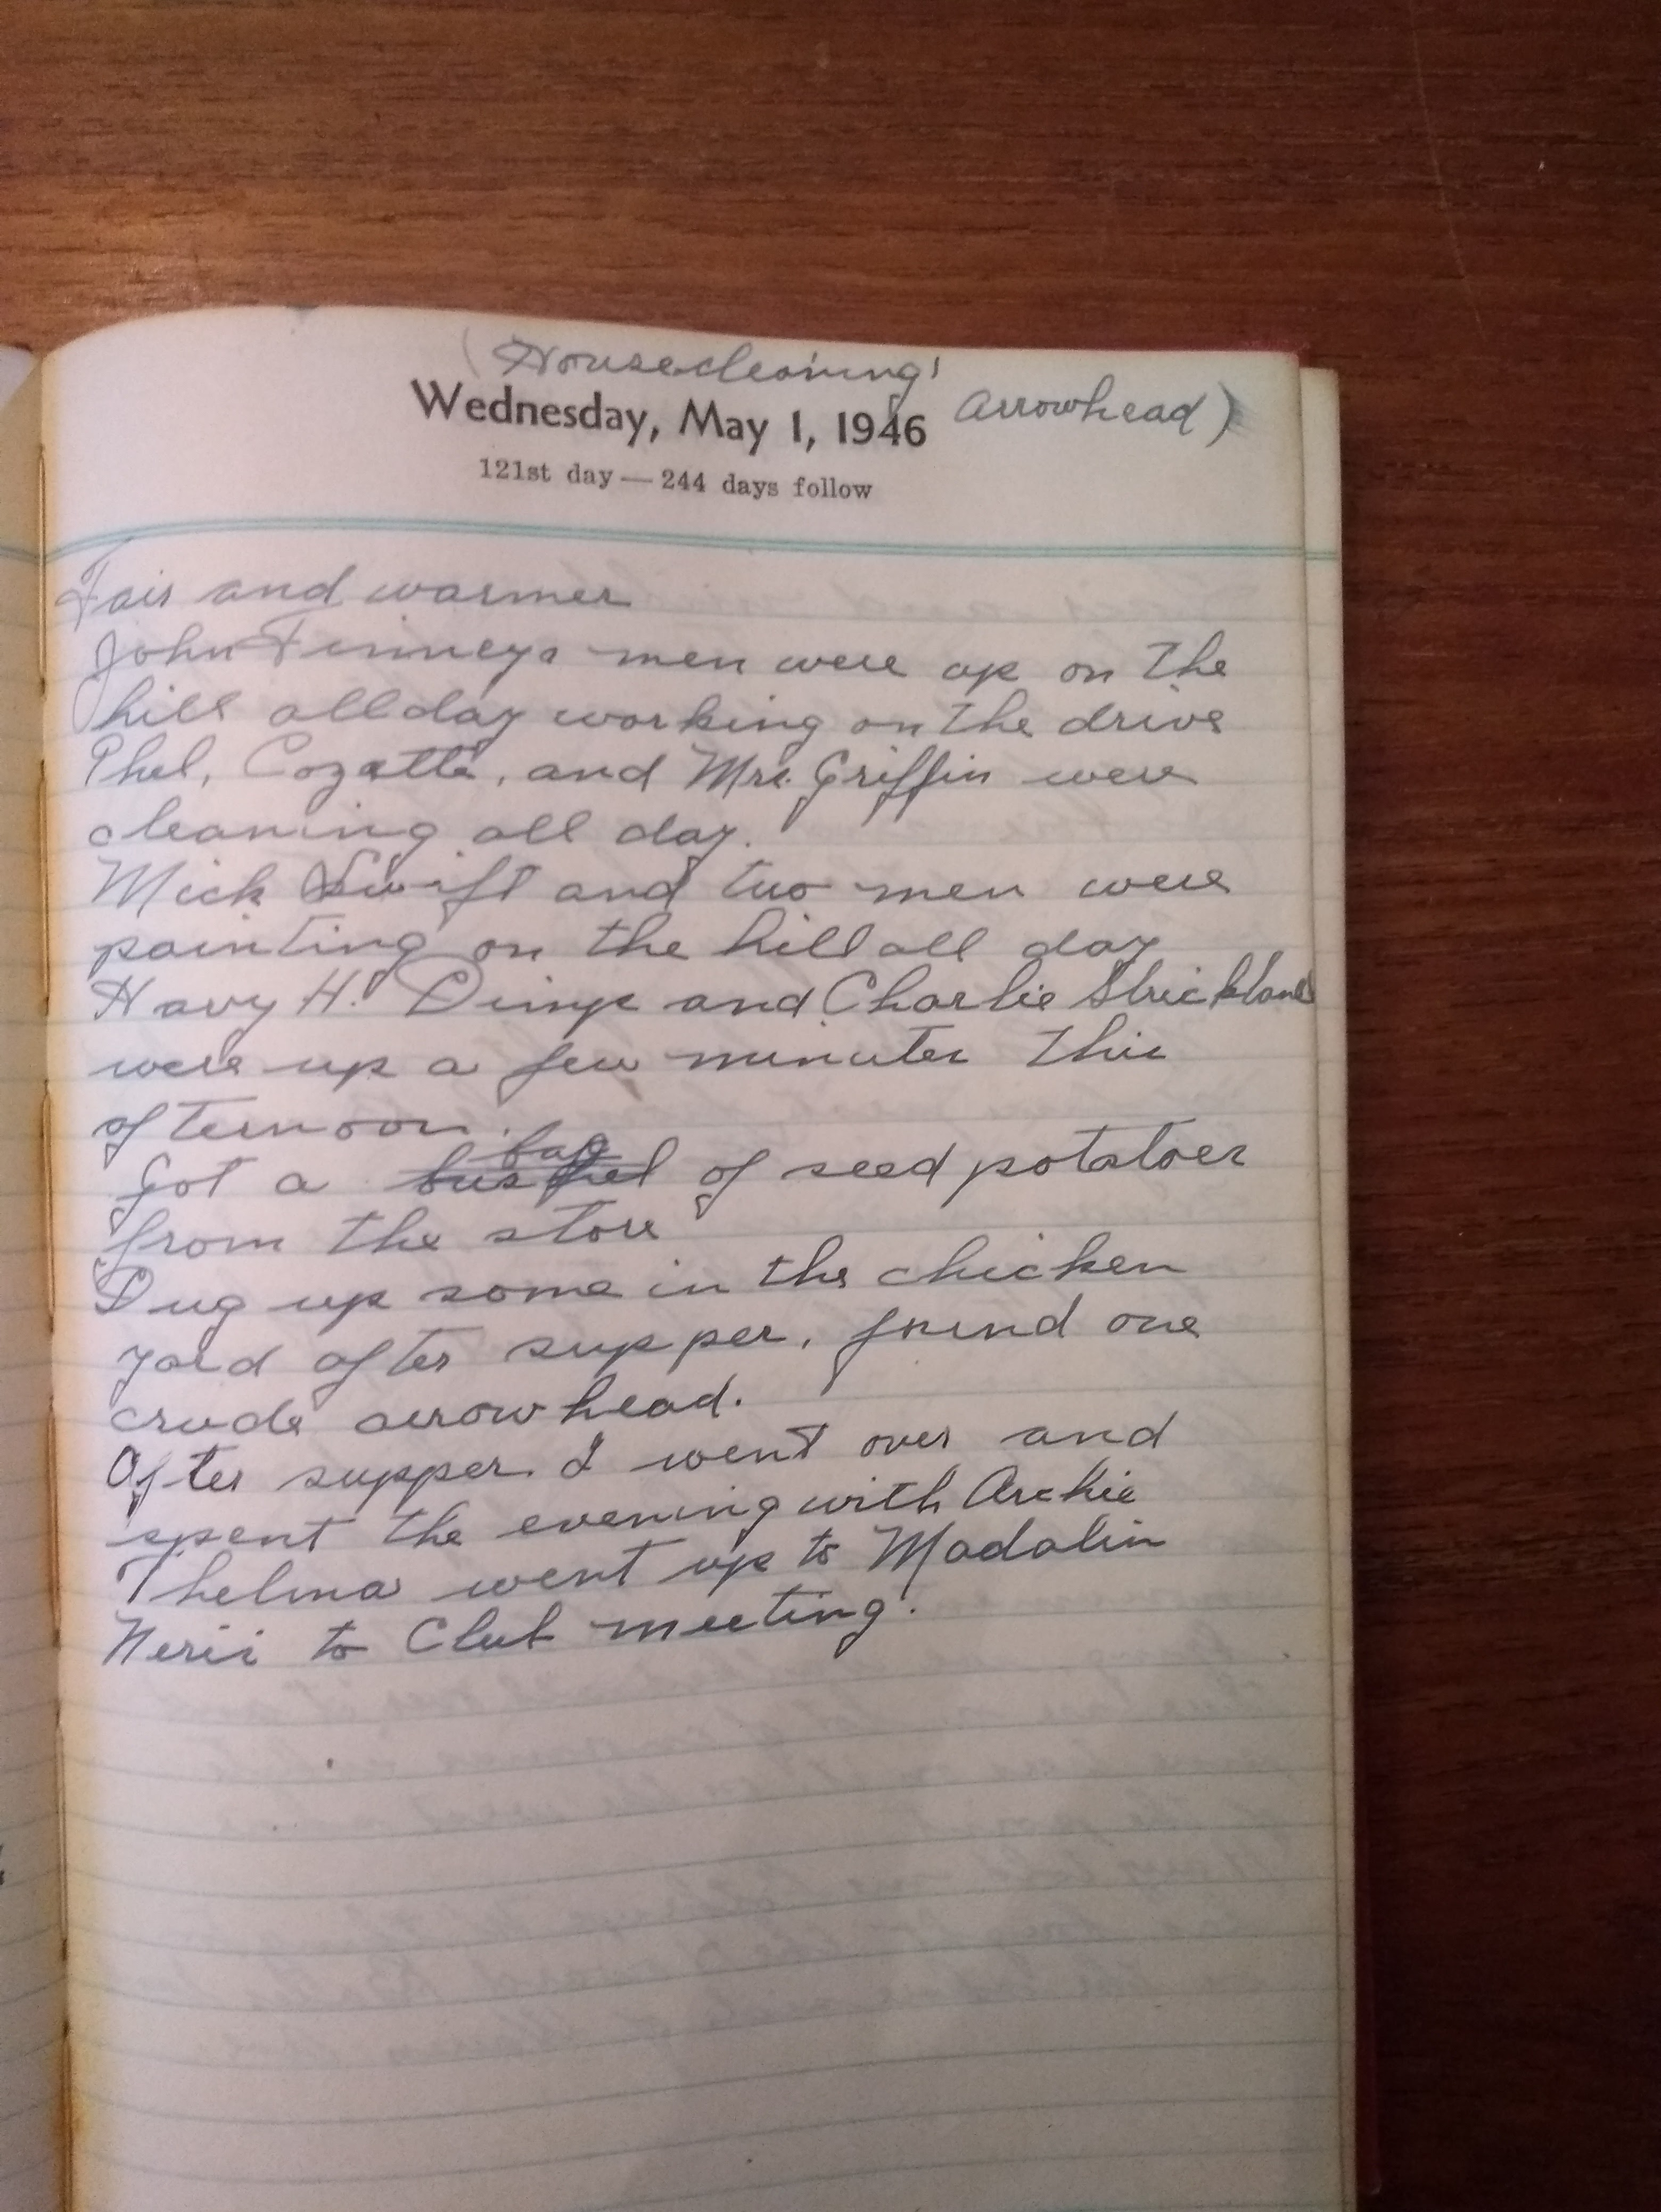 (Housecleaning'
Wednesday, May 1, 1946 Arrowhead)
121st day — 244 days follow
Fair and warmer
John Finneys men were up on the
hill all day working on the drive
Phel, Cozatte, and Mrs. Griffin were
cleaning all day.
Mick Swift and two men were
painting on the hill all day
Navy H. Dimp and Charlie Strickland
were up a few minutes this
afternoon.
bag
Got a bushel of seed potatoes
from the store
Dug up some in the chicken
yard after supper, found one
crude arrowhead.
After supper I went over and
spent the evening with Archie
Thelma went up to Madalin
to Club meeting.